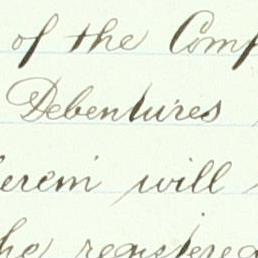 of the Comp
Debentures
herein will
he registered